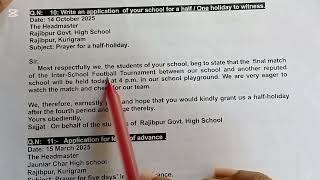 Q.N: 10: Write an application of your school for a half / One holiday to witness.
Date: 14 October 2025
The Headmaster
Rajibpur Govt. High School
Rajibpur, Kurigram
Subject: Prayer for a half-holiday.
Sir,
Most respectfully we, the students of your school, beg to state that the final match
of the Inter-School Football Tournament between our school and another reputed
school will be held today at 4 p.m. in our school playground. We are very eager to
watch the match and cheer for our team.
We, therefore, earnestly and hope that you would kindly grant us a half-holiday
after the fourth period and oblige thereby.
Yours obediently,
Sajjat On behalf of the students of Rajibpur Govt. High School
Q.N: 11:- Application for leave of advance.
Date: 15 March 2025
The Headmaster
Jauniar Char High school
Rajibpur, Kurigram
Subject: Prayer for five days'